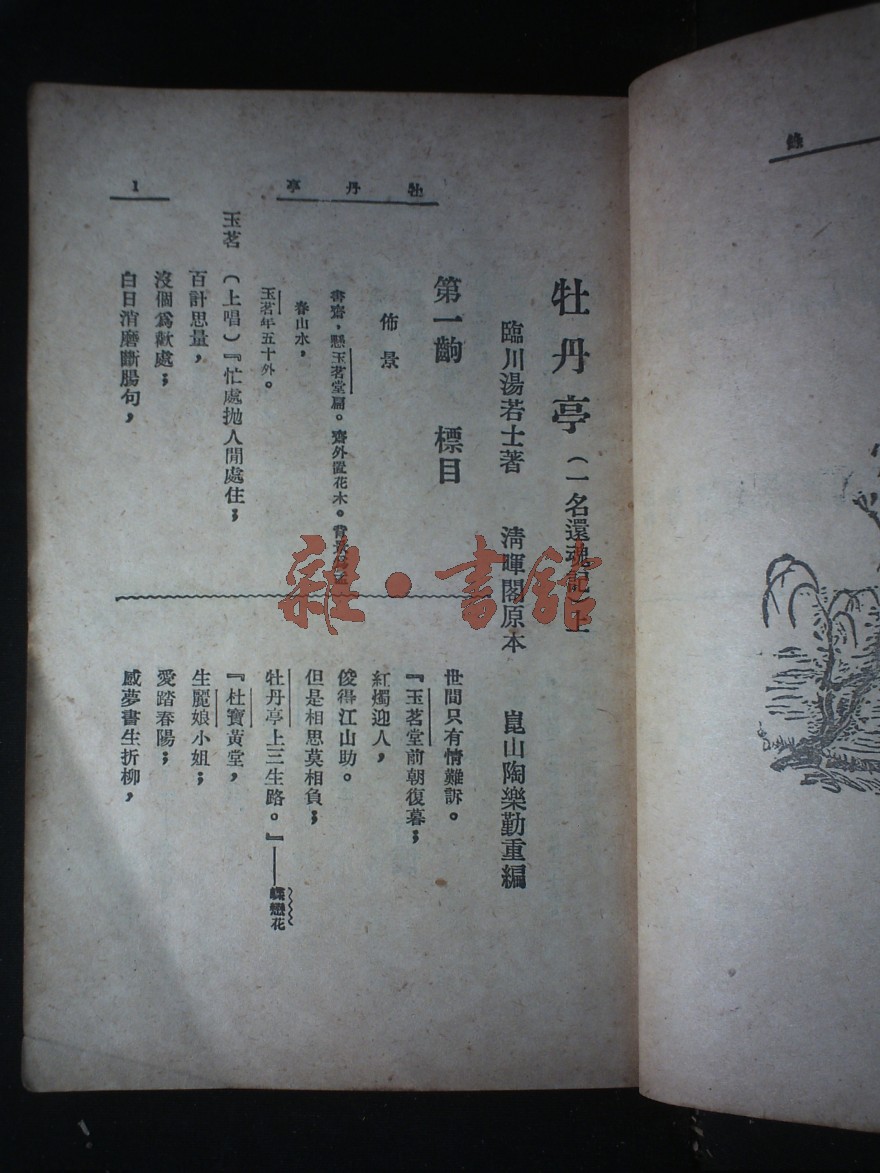 錄
牡丹亭
1
牡丹亭（一名還魂記）上
臨川湯若士著　清暉閣原本　崑山陶樂勤重編
第一齣　標目
佈景
書齋，懸玉茗堂扁。齋外置花木。背景
春山水，
玉茗年五十外。
玉茗　（上唱）『忙處抛人閒處住；
百計思量，
沒個爲歡處；
白日消磨斷腸句，
世間只有情難訴。
『玉茗堂前朝復暮；
紅燭迎人，
俊得江山助。
但是相思莫相負；
牡丹亭上三生路。』——蝶戀花
『杜寶黃堂，
生麗娘小姐；
愛踏春陽；
感夢書生折柳，
雜·書館